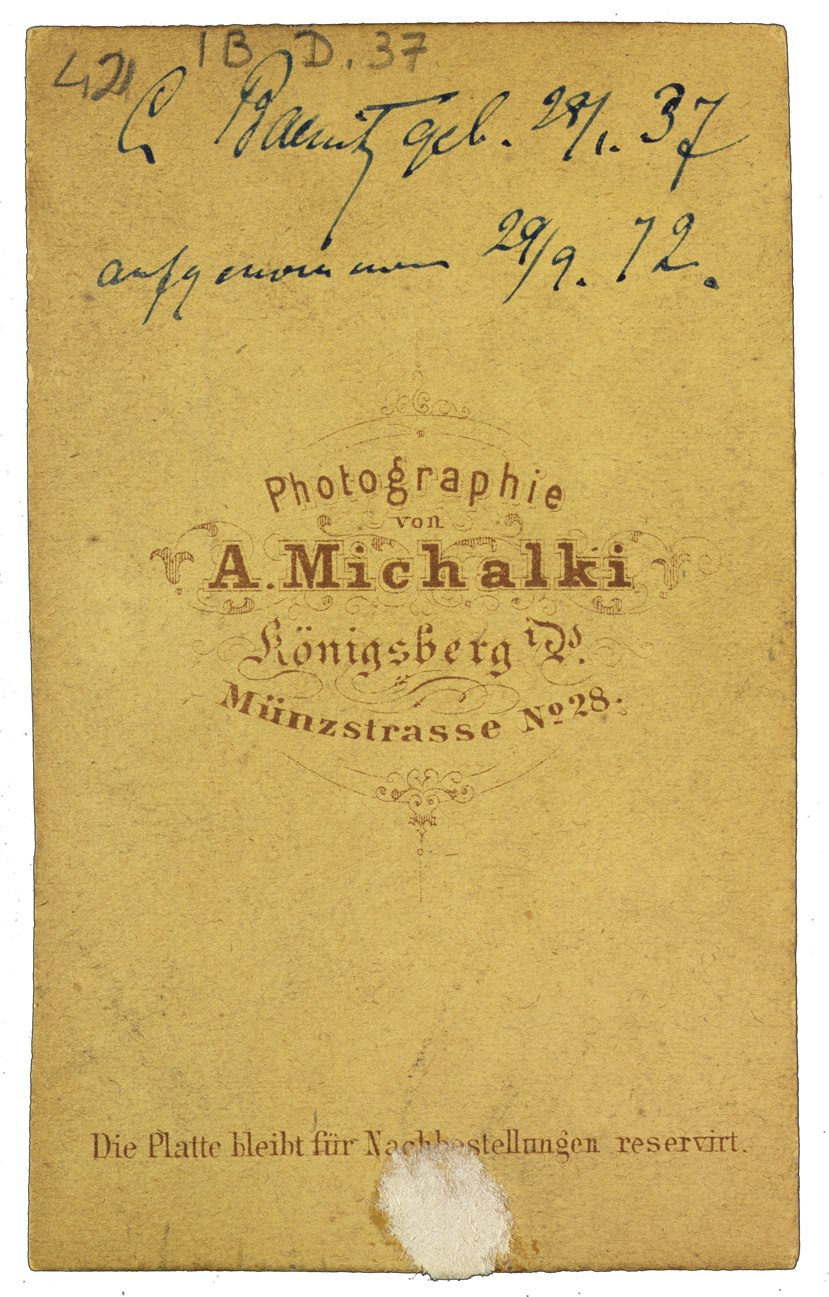 421 IB D. 37
C Baenitz geb. 28/1. 37
aufgenommen 29/9. 72.
Photographie
von
A. Michalki
Königsberg i/P.
Münzstrasse No 28.
Die Platte bleibt für Nachbestellungen reservirt.